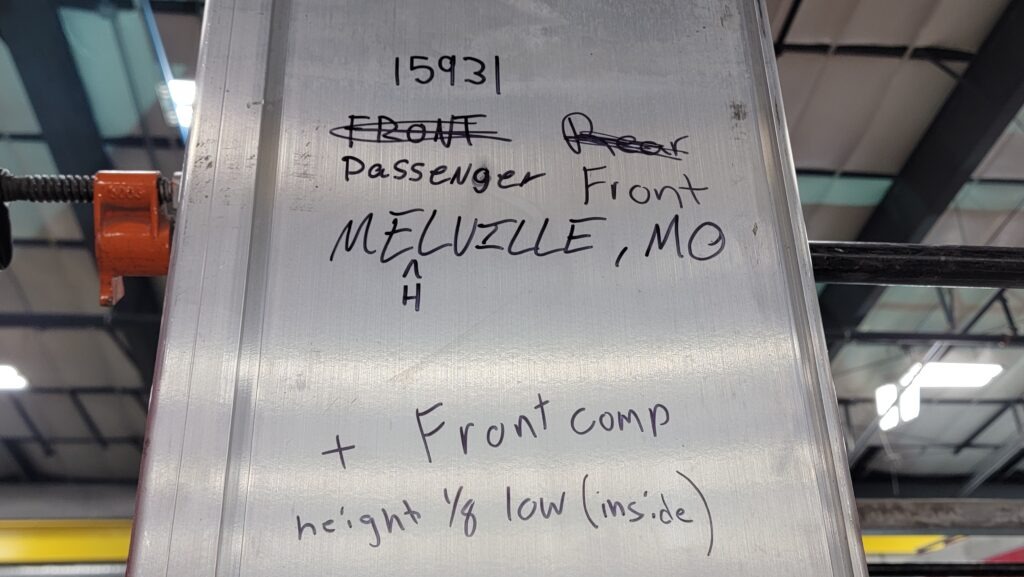 15931
FRONT Rear
Passenger Front
MELVILLE, MO
^
H
+ Front comp
height 1/8 low (inside)